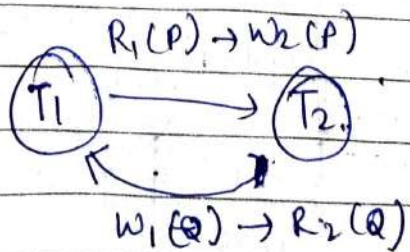 R₁(P) → W₂(P)
T₁ T₂.
W₁(Q) → R₂(Q)